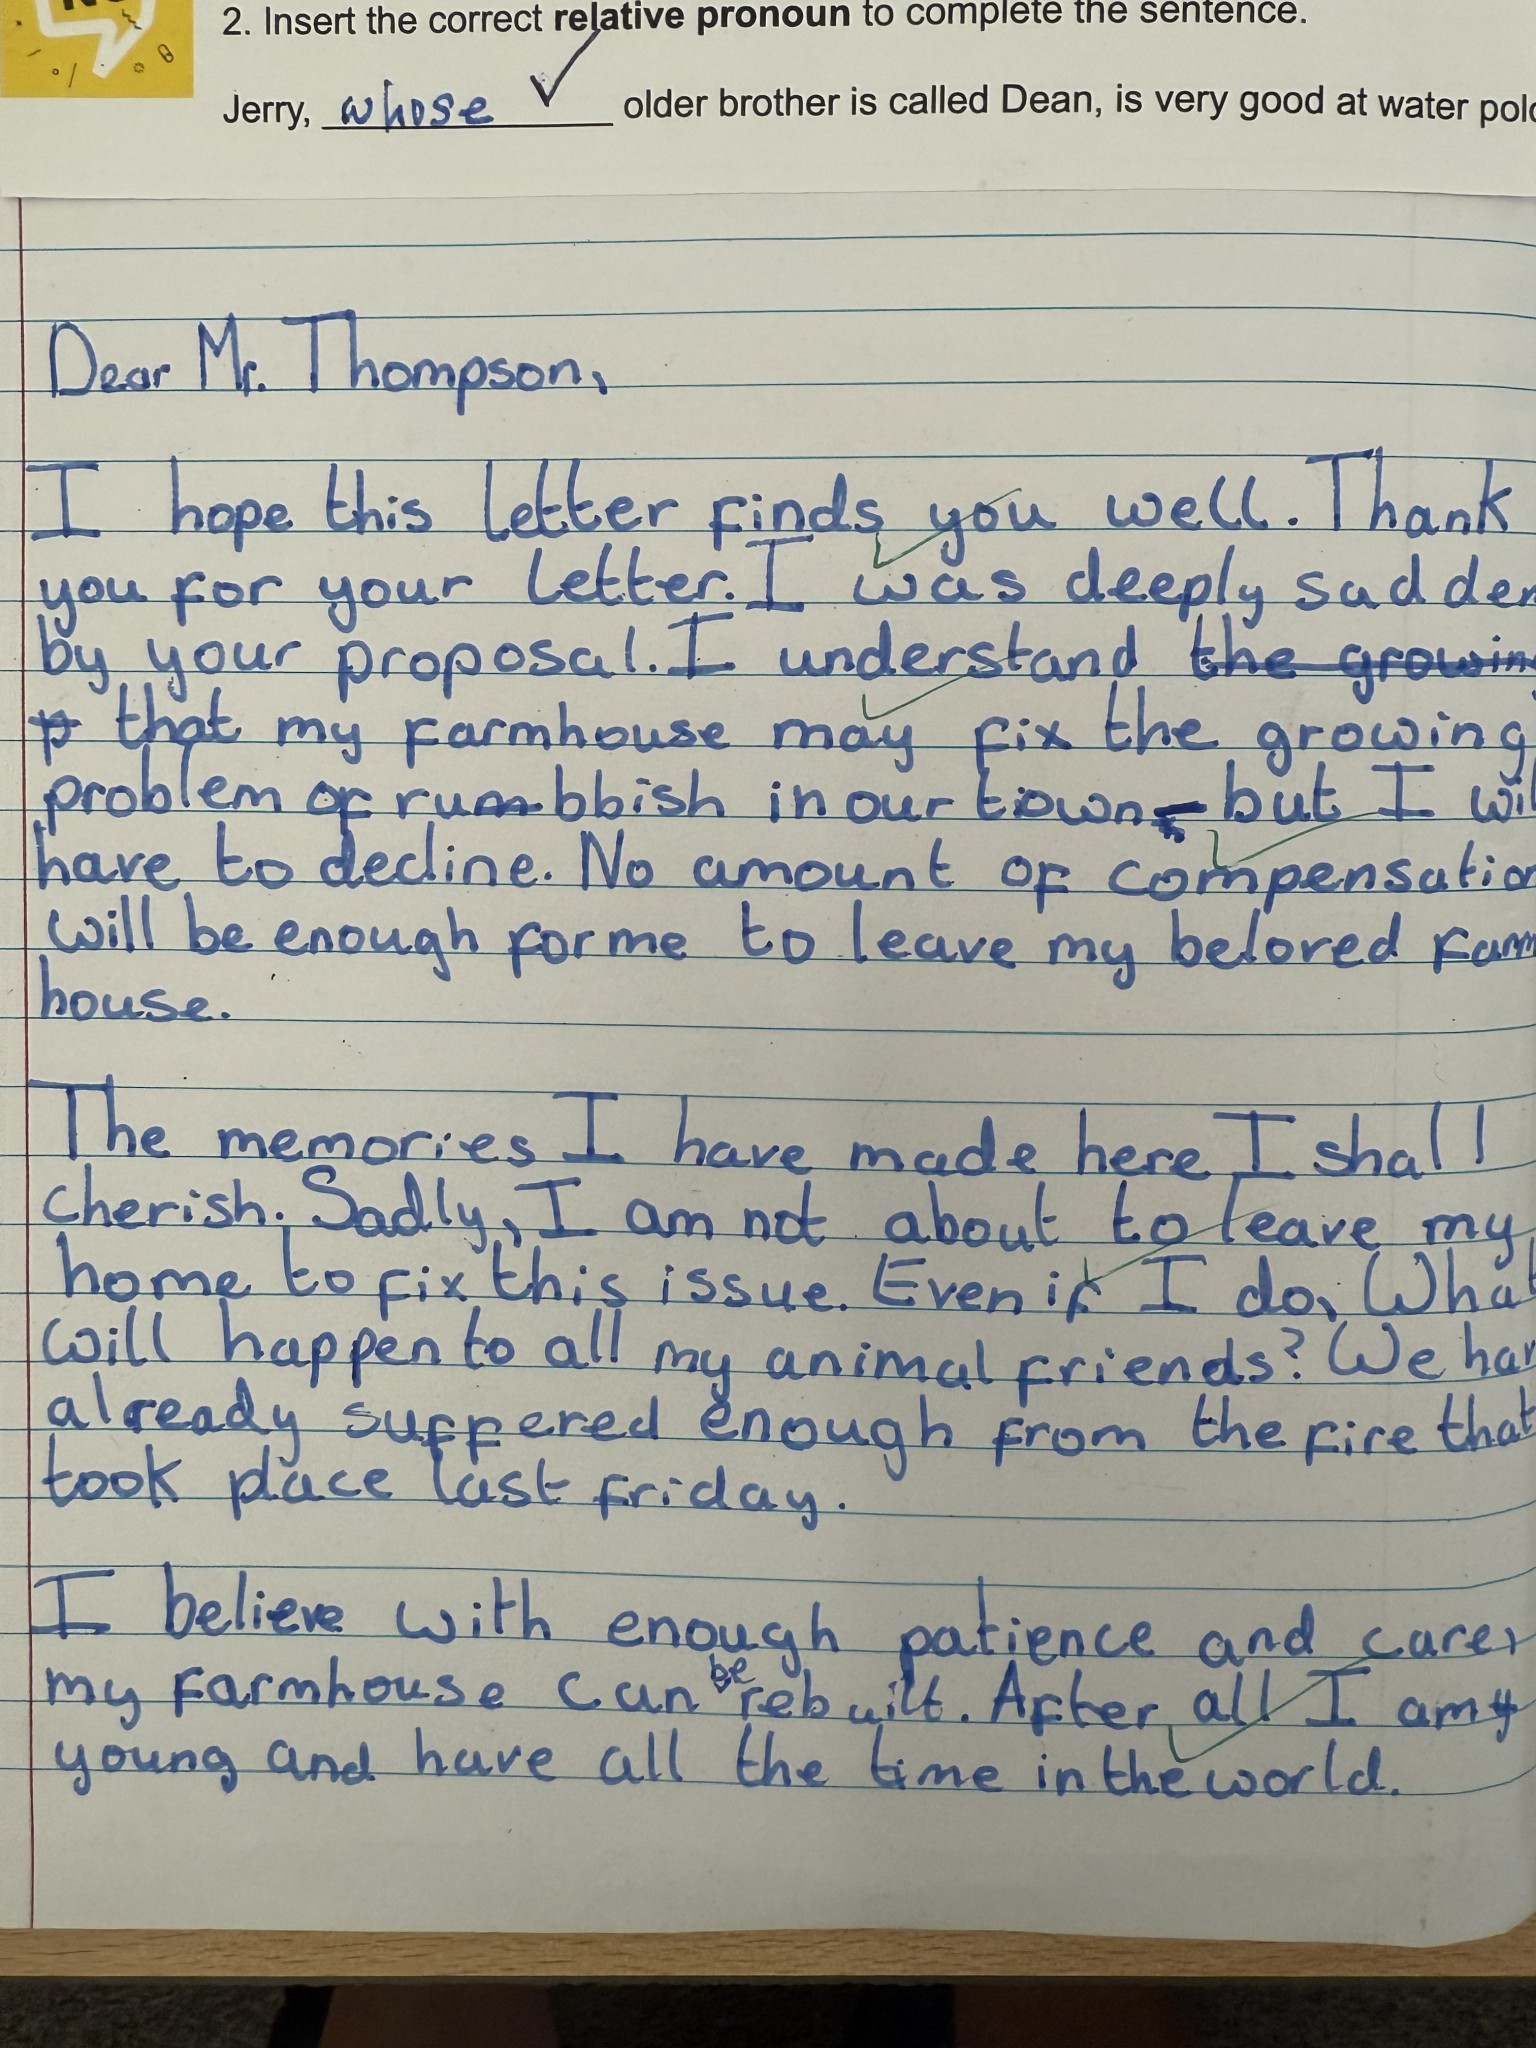 2. Insert the correct relative pronoun to complete the sentence.
Jerry, whose older brother is called Dean, is very good at water polo
Dear Mr. Thompson,
I hope this letter finds you well. Thank
you for your letter. I was deeply sadden
by your proposal. I understand the growing
that my farmhouse may fix the growing
problem of rubbish in our town but I will
have to decline. No amount of compensation
will be enough for me to leave my beloved farm
house.
The memories I have made here I shall
cherish. Sadly, I am not about to leave my
home to fix this issue. Even if I do, What
will happen to all my animal friends? We have
already suffered enough from the fire that
took place last friday.
I believe with enough patience and care,
my farmhouse can be rebuilt. After all I am
young and have all the time in the world.